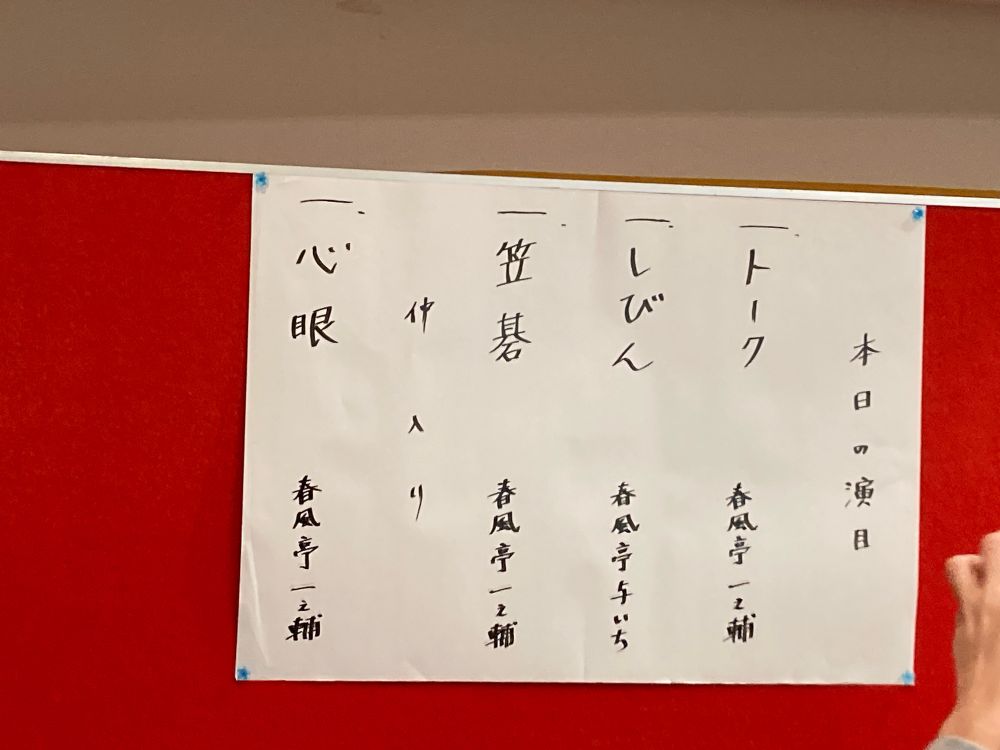 本日の演目
一.トーク 春風亭一之輔
一.しびん 春風亭与いち
一.笠碁 春風亭一之輔
仲入り
一.心眼 春風亭一之輔